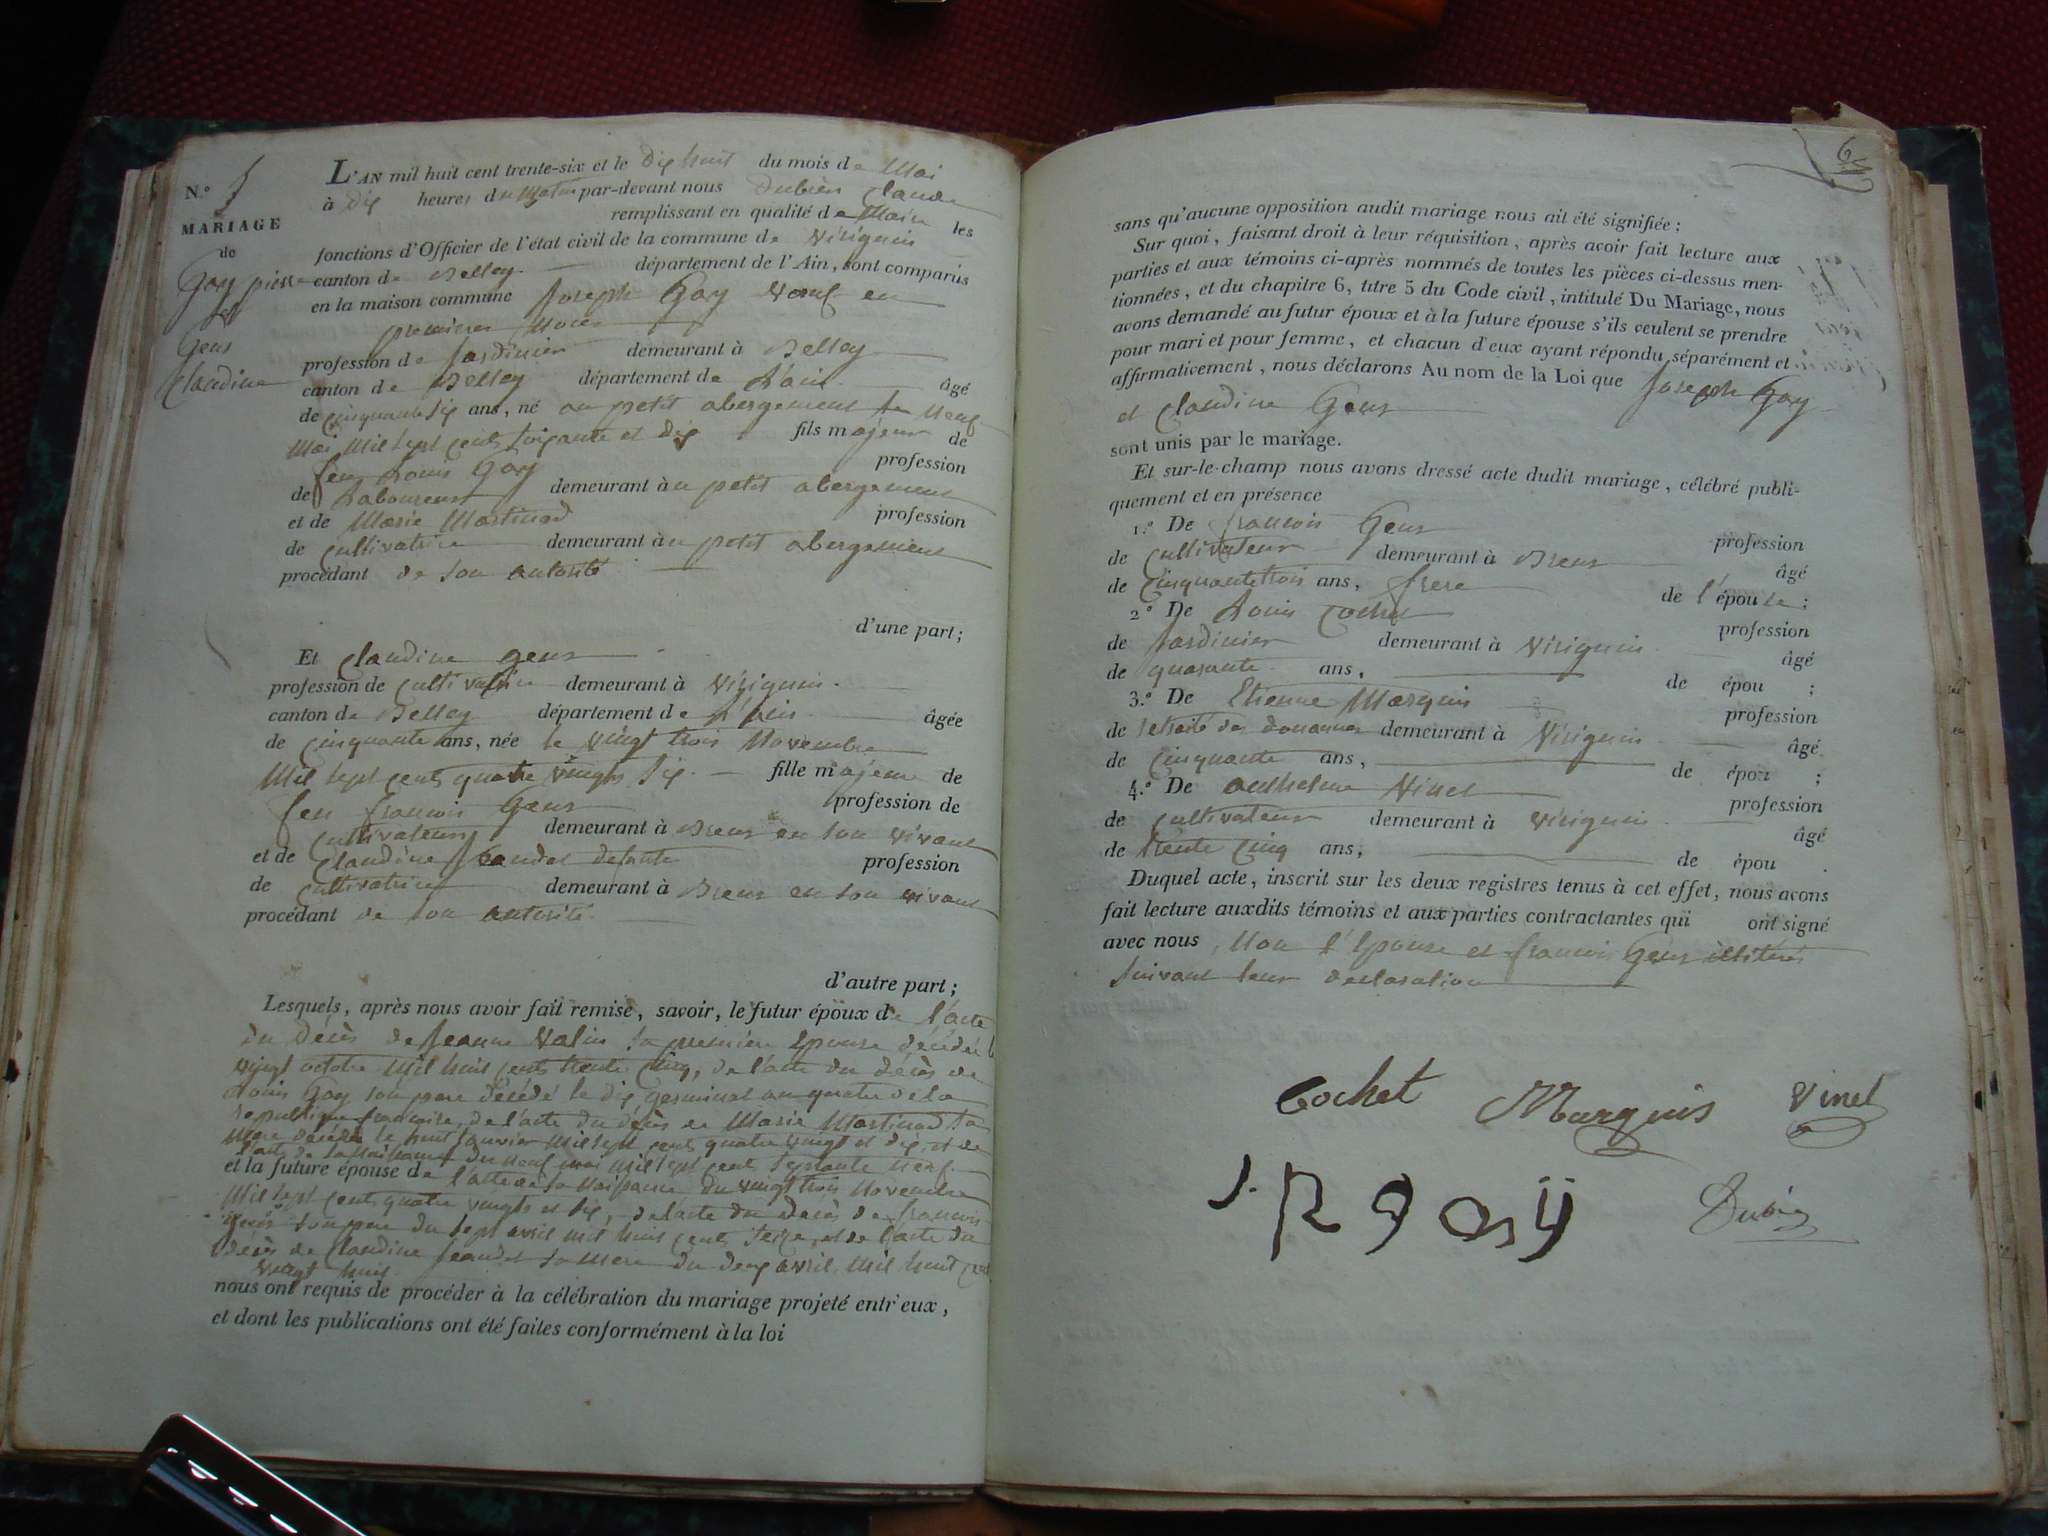 N.° 5
MARIAGE
de
Gay pierre
et
Geus
Claudine
L'AN mil huit cent trente-six et le dix huit du mois de Mai
à dix heures du Matin par-devant nous Dubien Claude
remplissant en qualité de Maire les
fonctions d'Officier de l'état civil de la commune de Virignin
canton de Belley département de l'Ain, sont comparus
en la maison commune Joseph Gay veuf en
premieres noces
profession de Jardinier demeurant à Belley
canton de Belley département de L'ain âgé
de cinquante six ans, né au petit abergement le neuf
Mai mil sept cent soixante et dix fils majeur de
feu Louis Gay profession
de Laboureur demeurant à u petit abergement
et de Marie Martinod profession
de cultivatrice demeurant à u petit abergement
procédant de son autorité
d'une part;
Et Claudine Geus
profession de cultivatrice demeurant à Virignin
canton de Belley département de L'ain âgée
de cinquante ans, née le vingt trois Novembre
Mil sept cent quatre vingts six fille majeure de
feu francois Geus profession de
cultivateur demeurant à Brens en son vivant
et de Claudine Jeandet defunte profession
de cultivatrice demeurant à Brens en son vivant
procédant de son autorité
d'autre part;
Lesquels, après nous avoir fait remise, savoir, le futur époux de l'acte
du décès de Jeanne Valin sa premiere Epouse décédée le
vingt octobre mil huit cent trente cinq, de l'acte du décès de
Louis Gay son pere décédé le dix germinal an quatre de la
republique francaise, de l'acte du décès de Marie Martinod sa
Mere décédée le huit Janvier mil sept cent quatre vingt et dix, et de
l'acte de sa Naissance du neuf mai mil sept cent septante neuf
et la future épouse de l'acte de sa Naissance du vingt trois Novembre
Mil sept cent quatre vingts et six, de l'acte du Décès de francois
Geus son pere du sept avril mil huit cent seize, et de l'acte du
décès de Claudine Jeandet sa Mere du deux avril mil huit cent
vingt huit
nous ont requis de procéder à la célébration du mariage projeté entr'eux,
et dont les publications ont été faites conformément à la loi
6
sans qu'aucune opposition audit mariage nous ait été signifiée;
Sur quoi, faisant droit à leur réquisition, après avoir fait lecture aux
parties et aux témoins ci-après nommés de toutes les pièces ci-dessus men-
tionnées, et du chapitre 6, titre 5 du Code civil, intitulé Du Mariage, nous
avons demandé au futur époux et à la future épouse s'ils veulent se prendre
pour mari et pour femme, et chacun d'eux ayant répondu séparément et
affirmativement, nous déclarons Au nom de la Loi que Joseph Gay
et Claudine Geus
sont unis par le mariage.
Et sur-le-champ nous avons dressé acte dudit mariage, célébré publi-
quement et en présence
1.° De francois Geus profession
de cultivateur demeurant à Brens âgé
de cinquante trois ans, frere de l'épouse;
2.° De Louis Cochet profession
de Jardinier demeurant à Virignin âgé
de quarante ans, de épou ;
3.° De Etienne Marquis profession
de retraité des douannes demeurant à Virignin âgé
de cinquante ans, de épou ;
4.° De anthelme Vinet profession
de cultivateur demeurant à Virignin âgé
de trente cinq ans, de épou .
Duquel acte, inscrit sur les deux registres tenus à cet effet, nous avons
fait lecture auxdits témoins et aux parties contractantes qui ont signé
avec nous, Non l'Epouse et francois Geus illitérés
suivant leur declaration
Cochet Marquis Vinet
Dubien